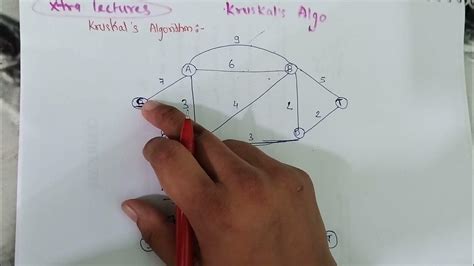 Xtra lectures
Kruskal's Algo
Kruskal's Algorithm:-
9
A 6 B
7 5
C 3 4 2 2 T
D
3
T